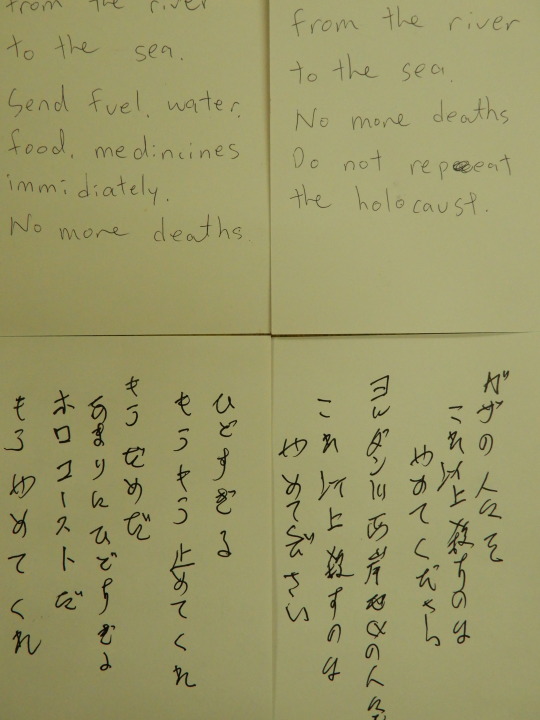 from the river
to the sea.
Send fuel. water.
food. medincines
immidiately.
No more deaths.
from the river
to the sea.
No more deaths
Do not repeat
the holocaust.
ガザの人々を
これ以上殺すのは
やめてください
ヨルダン川西岸地区の人々
これ以上殺すのは
やめてください
ひどすぎる
もうもう止めてくれ
もうだめだ
あまりにひどすぎる
ホロコーストだ
もうやめてくれ